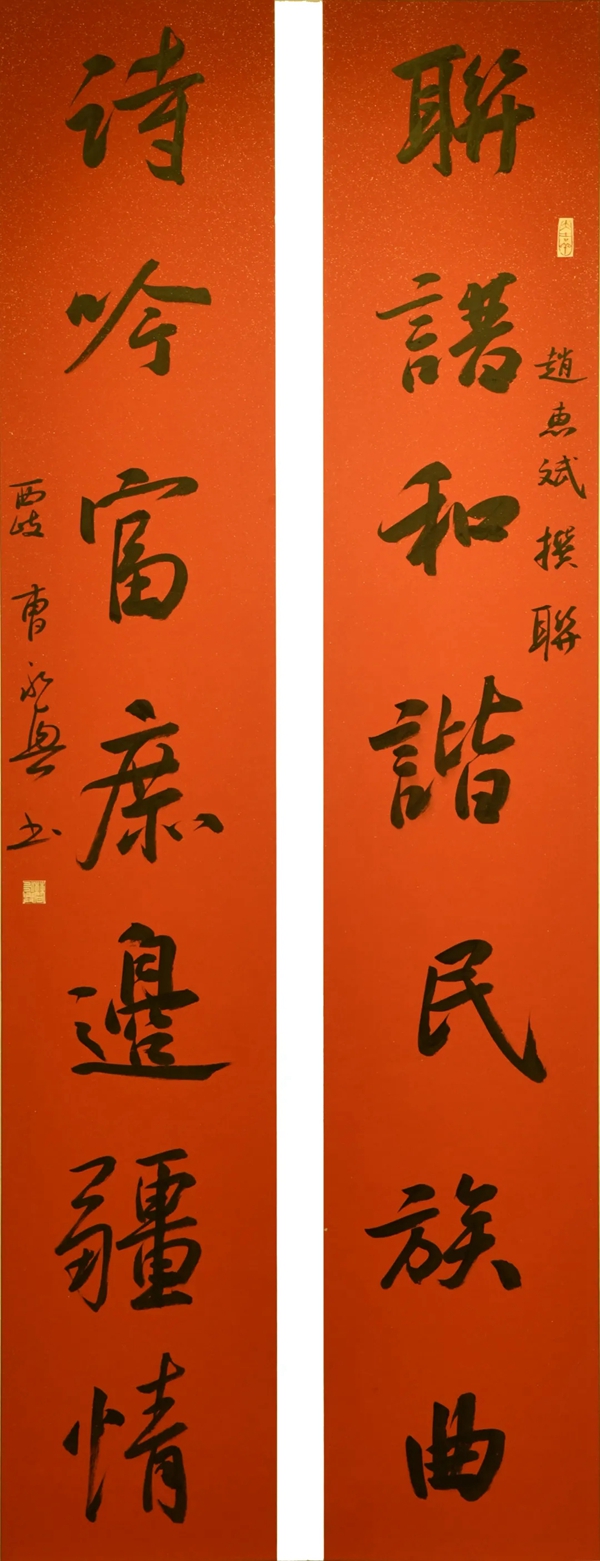 趙惠斌撰聯
聯譜和諧民族曲
詩吟富庶邊疆情
西歧 曹永興 书